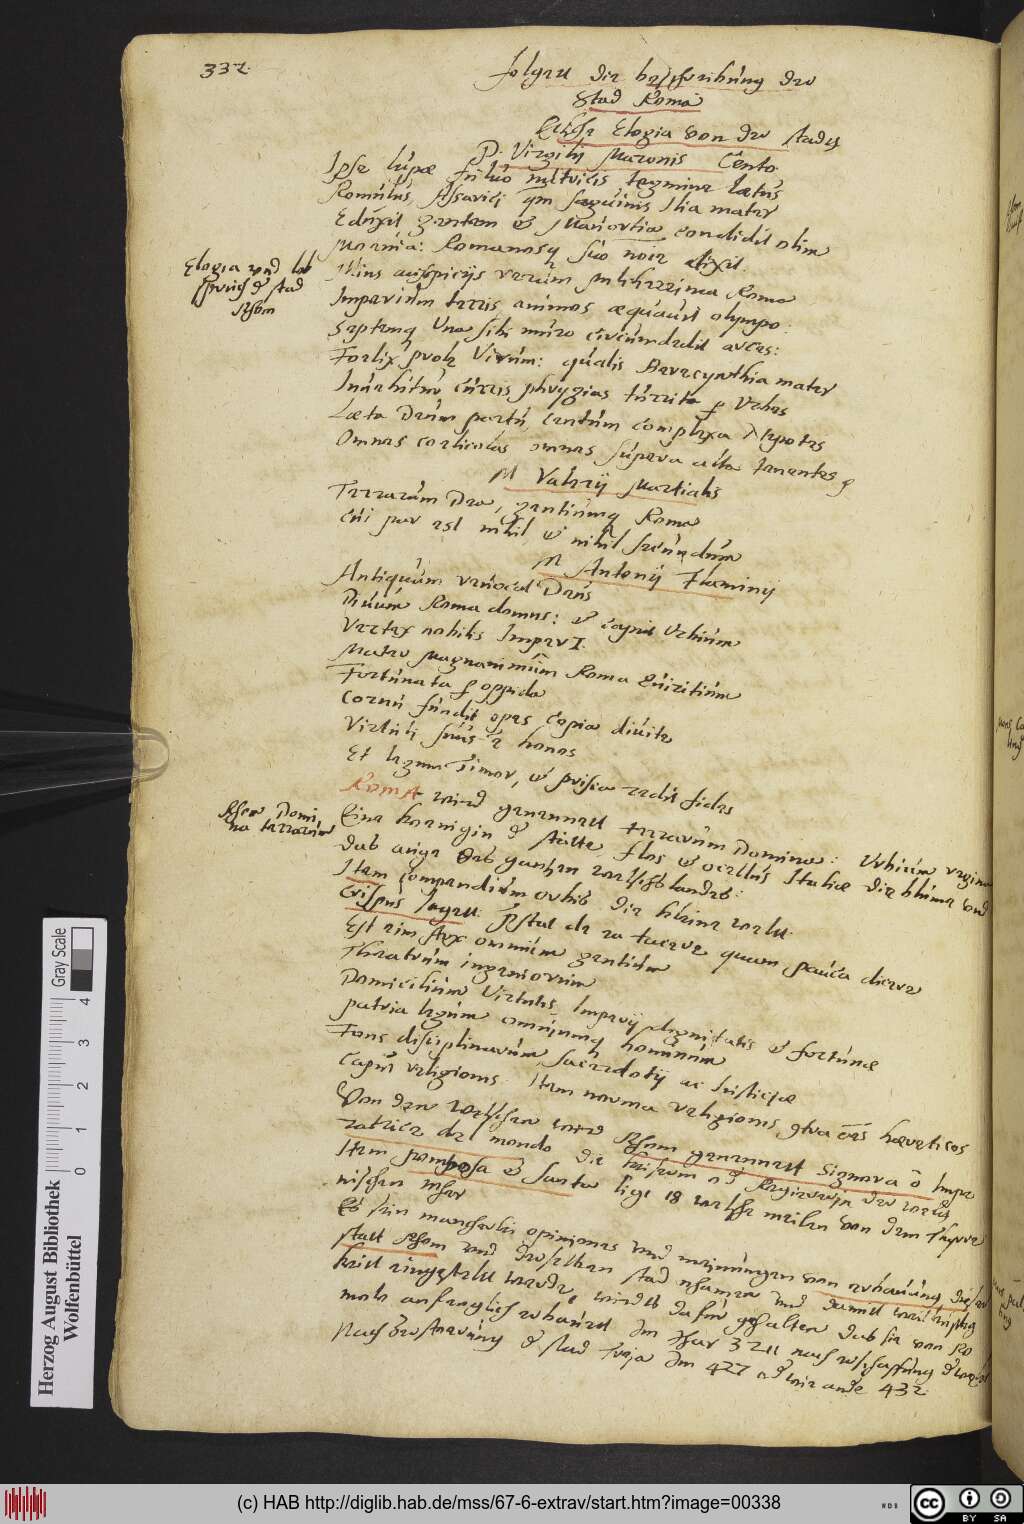 332.
folgett die beschreibung der
Stad Roma
Etliche Elogia von der stadt
P. Virgilij Maronis Cento
Ipse lupæ fuluo nutricis tegmine lætus
Romulus, Assaraci quem sanguinis Ilia mater
Eduxit gentem et Mauortia condidit olim
Moenia: Romanosq suo noie dixit.
Illius auspicijs rerum pulcherrima Roma
Imperium terris, animos æquauit olympo.
Septemq Una sibi muro circumdedit arces:
Foelix prole Virum: qualis Berecynthia mater
Inuehitur curru phrygias turrita p Urbes
Læta Deum partu, centum complexa Nepotes
Omnes coelicolas omnes supera alta tenentes
Elogia und lob
spruch d stad
Rhom
M Valerij Martialis
Terrarum Dea, gentiumq Roma
Cui par est nihil et nihil secundum
M Antonij Flaminij
Antiquum
Diuum Roma domus: et caput Urbium
Vertex nobilis ImperI.
Mater Magnanimum Roma Quiritium
Fortunata p oppida
Cornu fundit opes Copia diuite
Virtuti suus e honos
Et legum Timor, et prisca redit fides
ROMA wird genennett terrarum Domina: Urbium regina
Rhom Domi
na terrarum
Eine koenigin d stätte flos et ocellus Italiæ die blume und
das auge des gantzen welschlandes:
Item compendium orbis die kleine welt.
Crispus saget. Prstat de ea tacere quam pauca dicere
Est eim Arx omnium gentium
Theatrum ingeniorum
Domicilium Virtutis Imperij dignitatis et fortunæ
patria legum omniumq hominum
Fons disciplinarum, sacerdotij ac Iustitiæ
Caput religionis. Item norma religionis, contra oes hæreticos
Von den Welschen wird Rhom genennett Signora o Impe
ratrice del mondo die
Item pomposa et santa ligt 18 welsche meilen von dem
nischen mehr
Es sein mancherlei opiniones und meinungen von erbauung dieser
statt Rhom und derselben stad nhamen und damit
keit eingestelt werde, wirdts dafur gehalten das sie von Ro
molo anfenglich erbauet Im Ihar 3211 nach erschaffung d welt
Nach Zerstorung d stad Troja Im 427 od wie andre 432
Herzog August Bibliothek
Wolfenbüttel
0 1 2 3 4
Gray Scale
(c) HAB http://diglib.hab.de/mss/67-6-extrav/start.htm?image=00338
WDB
cc BY SA